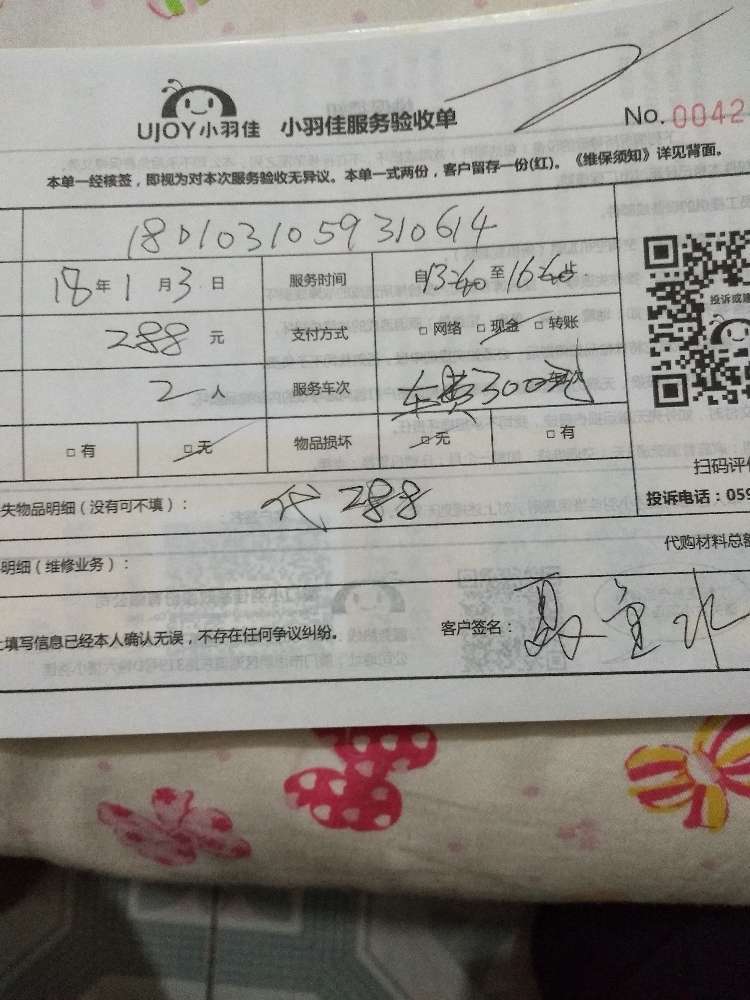 UJOY小羽佳 小羽佳服务验收单
No.0042
本单一经核签，即视为对本次服务验收无异议。本单一式两份，客户留存一份(红)。《维保须知》详见背面。
18D1031059310614
18年1月3日 服务时间 自13:00至16:00点
投诉或建
288元 支付方式 □网络 □现金 □转账
2人 服务车次 车费300元
□有 □无 物品损坏 □无 □有
扫码评
失物品明细（没有可不填）： 代288
投诉电话：059
代购材料总额
明细（维修业务）：
填写信息已经本人确认无误，不存在任何争议纠纷。 客户签名：